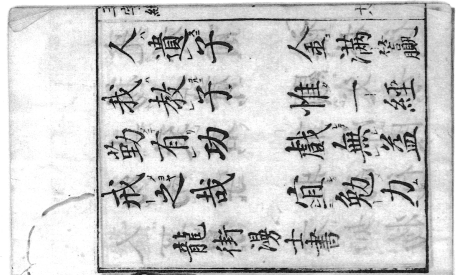 三字經
人遺子 金滿籯
我教子 惟一經
勤有功 戲無益
戒之哉 宜勉力
龍街漫士書